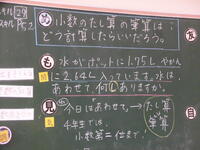 スキル 29
P52
め 小数のたし算の筆算は、
どう計算したらいいだろう。
も 水がポットに1.75L、やかん
に2.64L入っています。水は、
あわせて何Lありますか。
見 今日はあわせて、→たし算
4年生では、筆算
小数第二位まで!
友
自